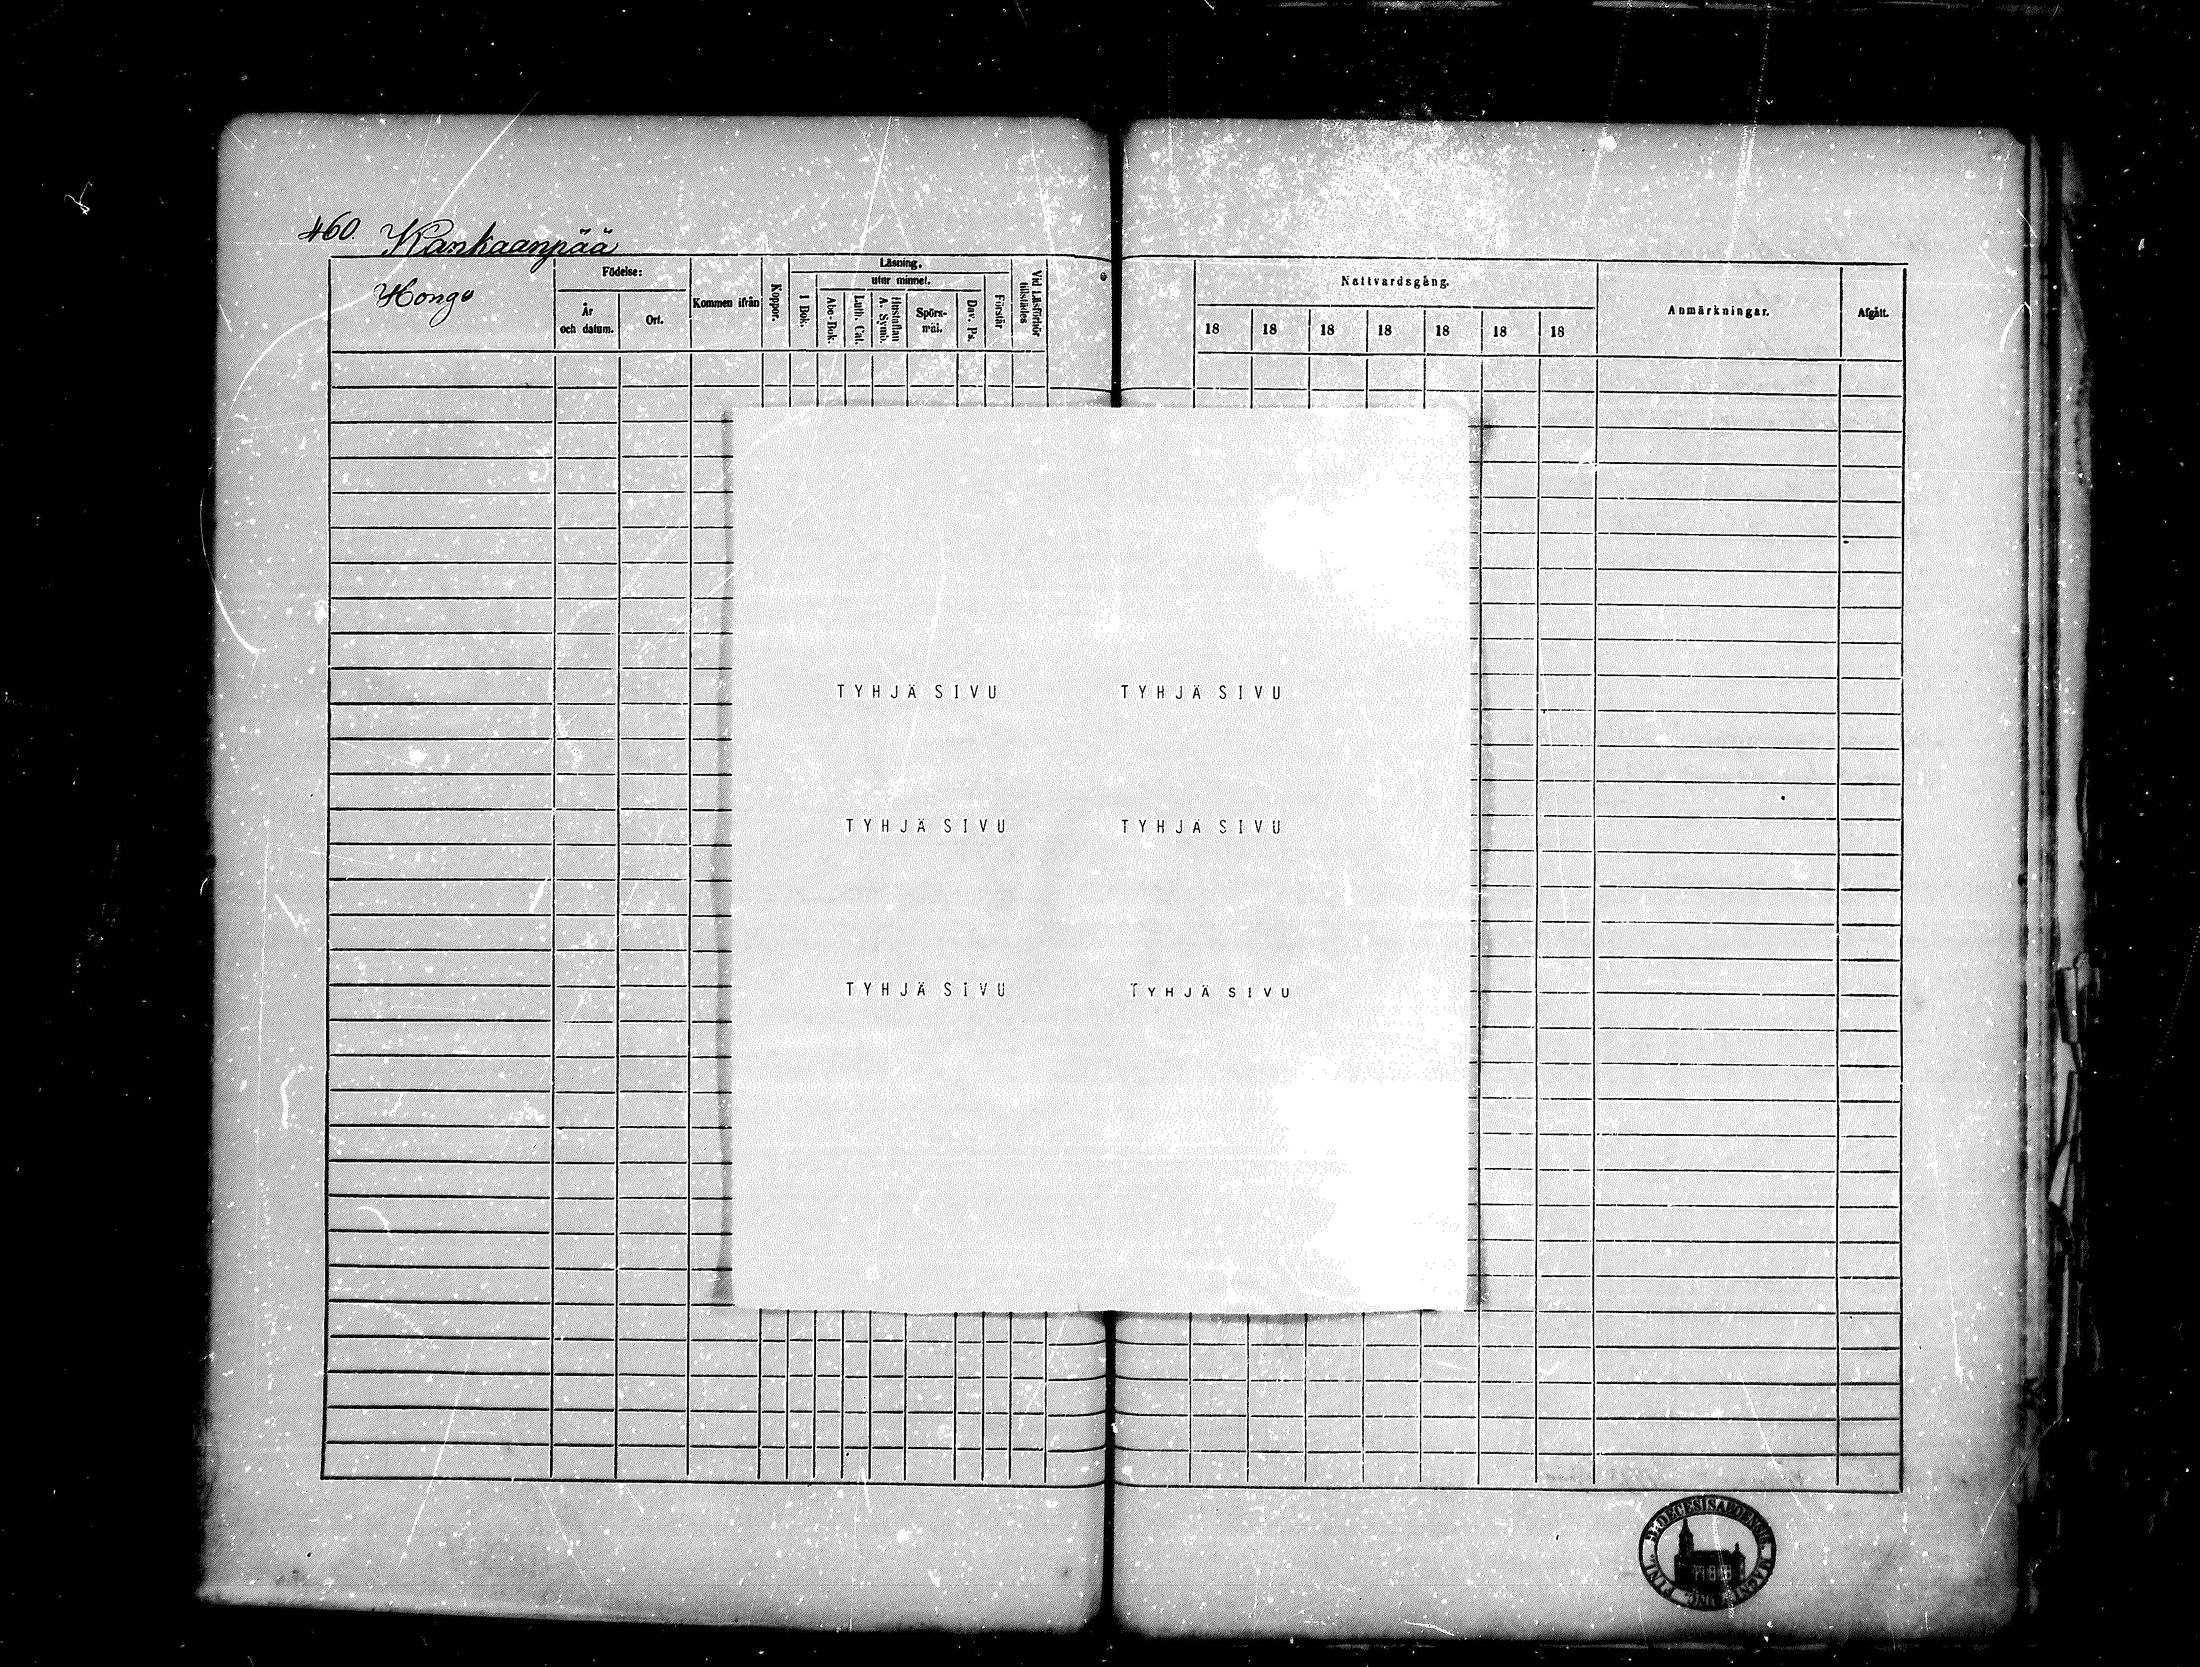 460. Kankaanpää
Hongo
Födelse:
År
och datum.
Ort.
Kommen ifrån
Koppor.
Läsning.
utur minnet.
I Bok.
Abc-Bok.
Luth. Cat.
Hustaflan
A. Symb.
Spörs-
mål.
Dav. Ps.
Förstår
Vid Läsförhör
tillstädes
Nattvardsgång.
18 18 18 18 18 18 18
Anmärkningar.
Afgått.
TYHJÄ SIVU TYHJÄ SIVU
TYHJÄ SIVU TYHJÄ SIVU
TYHJÄ SIVU TYHJÄ SIVU